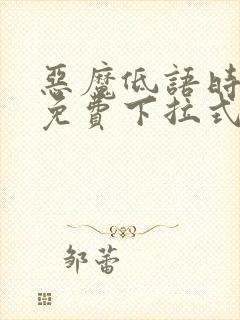 惡魔低語時
免費下拉式
邹蕾